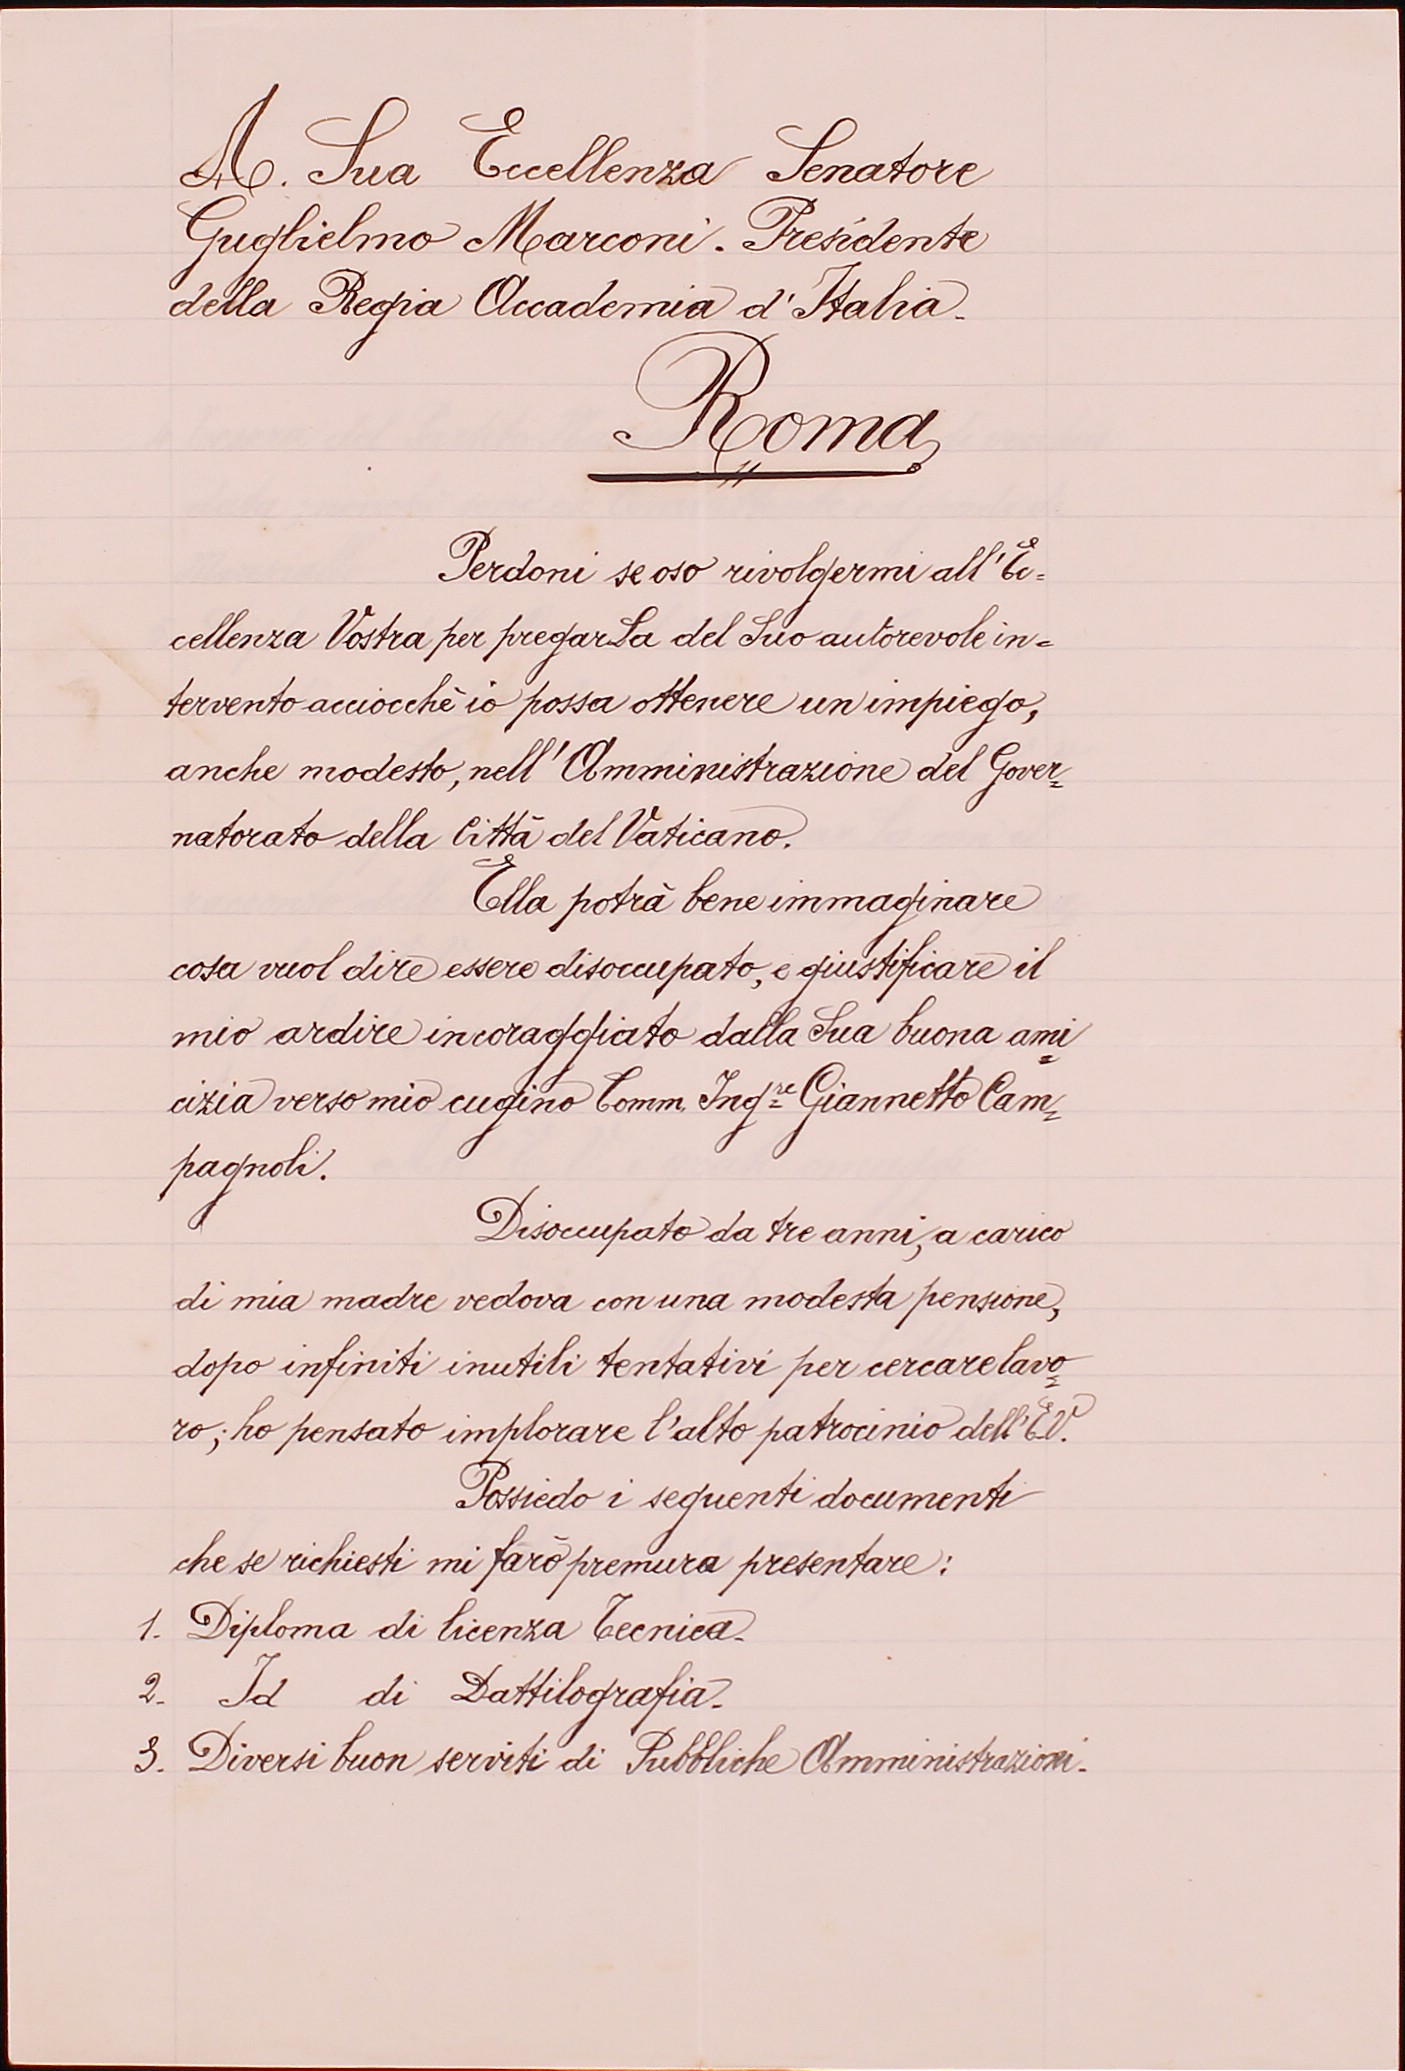 A. Sua Eccellenza Senatore
Guglielmo Marconi. Presidente
della Regia Accademia d'Italia.
Roma
Perdoni se oso rivolgermi all'Ec=
cellenza Vostra per pregarLa del Suo autorevole in=
tervento acciocchè io possa ottenere un impiego,
anche modesto, nell'Amministrazione del Gover=
natorato della Città del Vaticano.
Ella potrà bene immaginare
cosa vuol dire essere disoccupato, e giustificare il
mio ardire incoraggiato dalla Sua buona ami=
cizia verso mio cugino Comm. Ing.re Giannetto Cam=
pagnoli.
Disoccupato da tre anni, a carico
di mia madre vedova con una modesta pensione,
dopo infiniti inutili tentativi per cercare lavo=
ro; ho pensato implorare l'alto patrocinio dell'E.V.
Possiedo i seguenti documenti
che se richiesti mi farò premura presentare:
1. Diploma di licenza Tecnica.
2. Id di Dattilografia.
3. Diversi buon serviti di Pubbliche Amministrazioni.